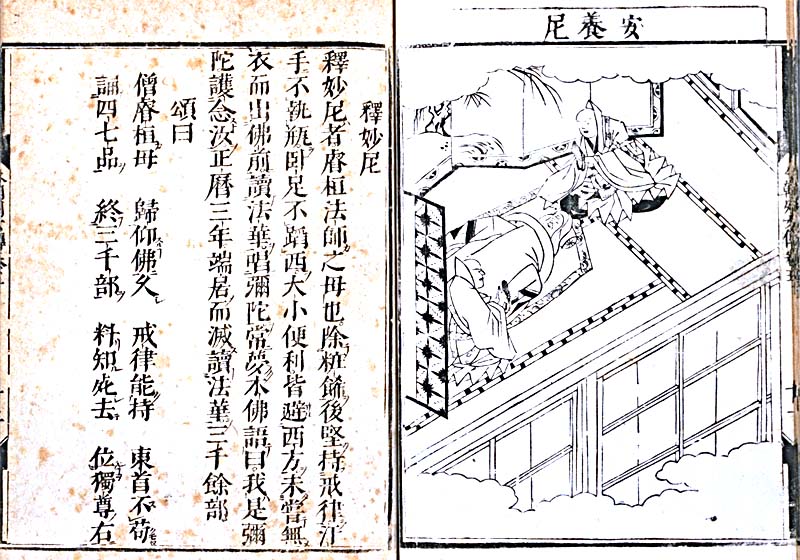 安養尼
釋妙尼
釋妙尼者睿桓法師之母也除粧餙後堅持戒律汙
手不執瓶卧足不蹈西大小便利皆避西方未嘗無
衣而出佛前讀法華唱彌陀常夢木佛語曰我是彌
陀護念汝正曆三年端居而滅讀法華三千餘部
頌曰
僧睿桓母 歸仰佛久 戒律能持 東首不苟
誦四七品 終三千部 料知此去 位獨尊右